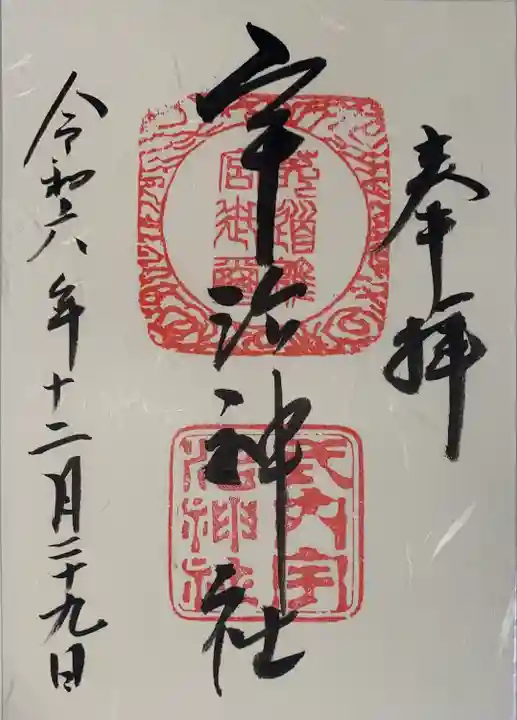 奉拝
宇治神社
式内宇
治神社
令和六年十二月二十九日